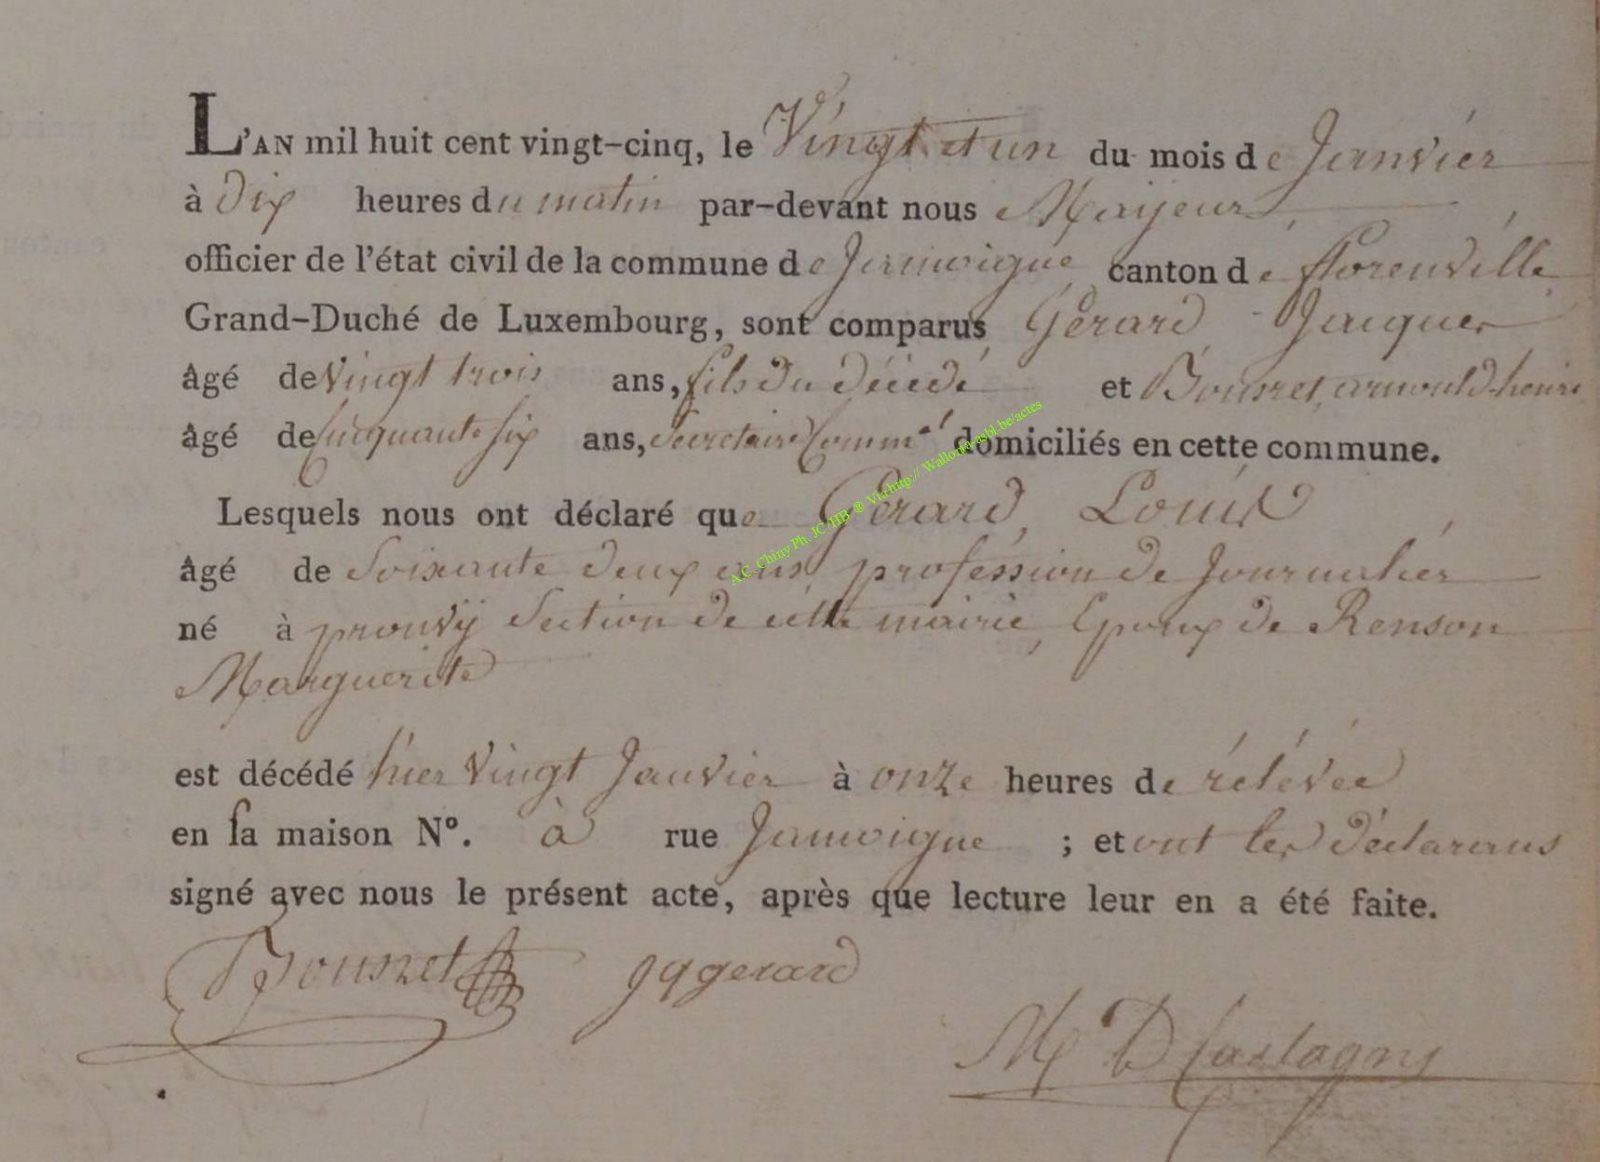 L'AN mil huit cent vingt-cinq, le Vingt et un du mois de Janvier
à dix heures du matin par-devant nous Maijeur
officier de l'état civil de la commune de Jamoigne canton de florenville
Grand-Duché de Luxembourg, sont comparus Gérard Jacques
âgé de Vingt trois ans, fils du décédé et Bousret arnould henri
âgé de Cinquante six ans, Secretaire Comm.al domiciliés en cette commune.
Lesquels nous ont déclaré que Gérard, Louis
âgé de Soixante deux ans, profession de Journalier
né à prouvÿ Section de cette mairie, Epoux de Renson
Marguerite
est décédé hier Vingt Janvier à onze heures de rélévée
en sa maison N°. à rue Jamoigne ; et ont les déclarans
signé avec nous le présent acte, après que lecture leur en a été faite.
Bousret Jqgerard
M D Castagny
A.C. Chiny Ph. JC HB ® Via http:// Wallonia-asbl.be/actes